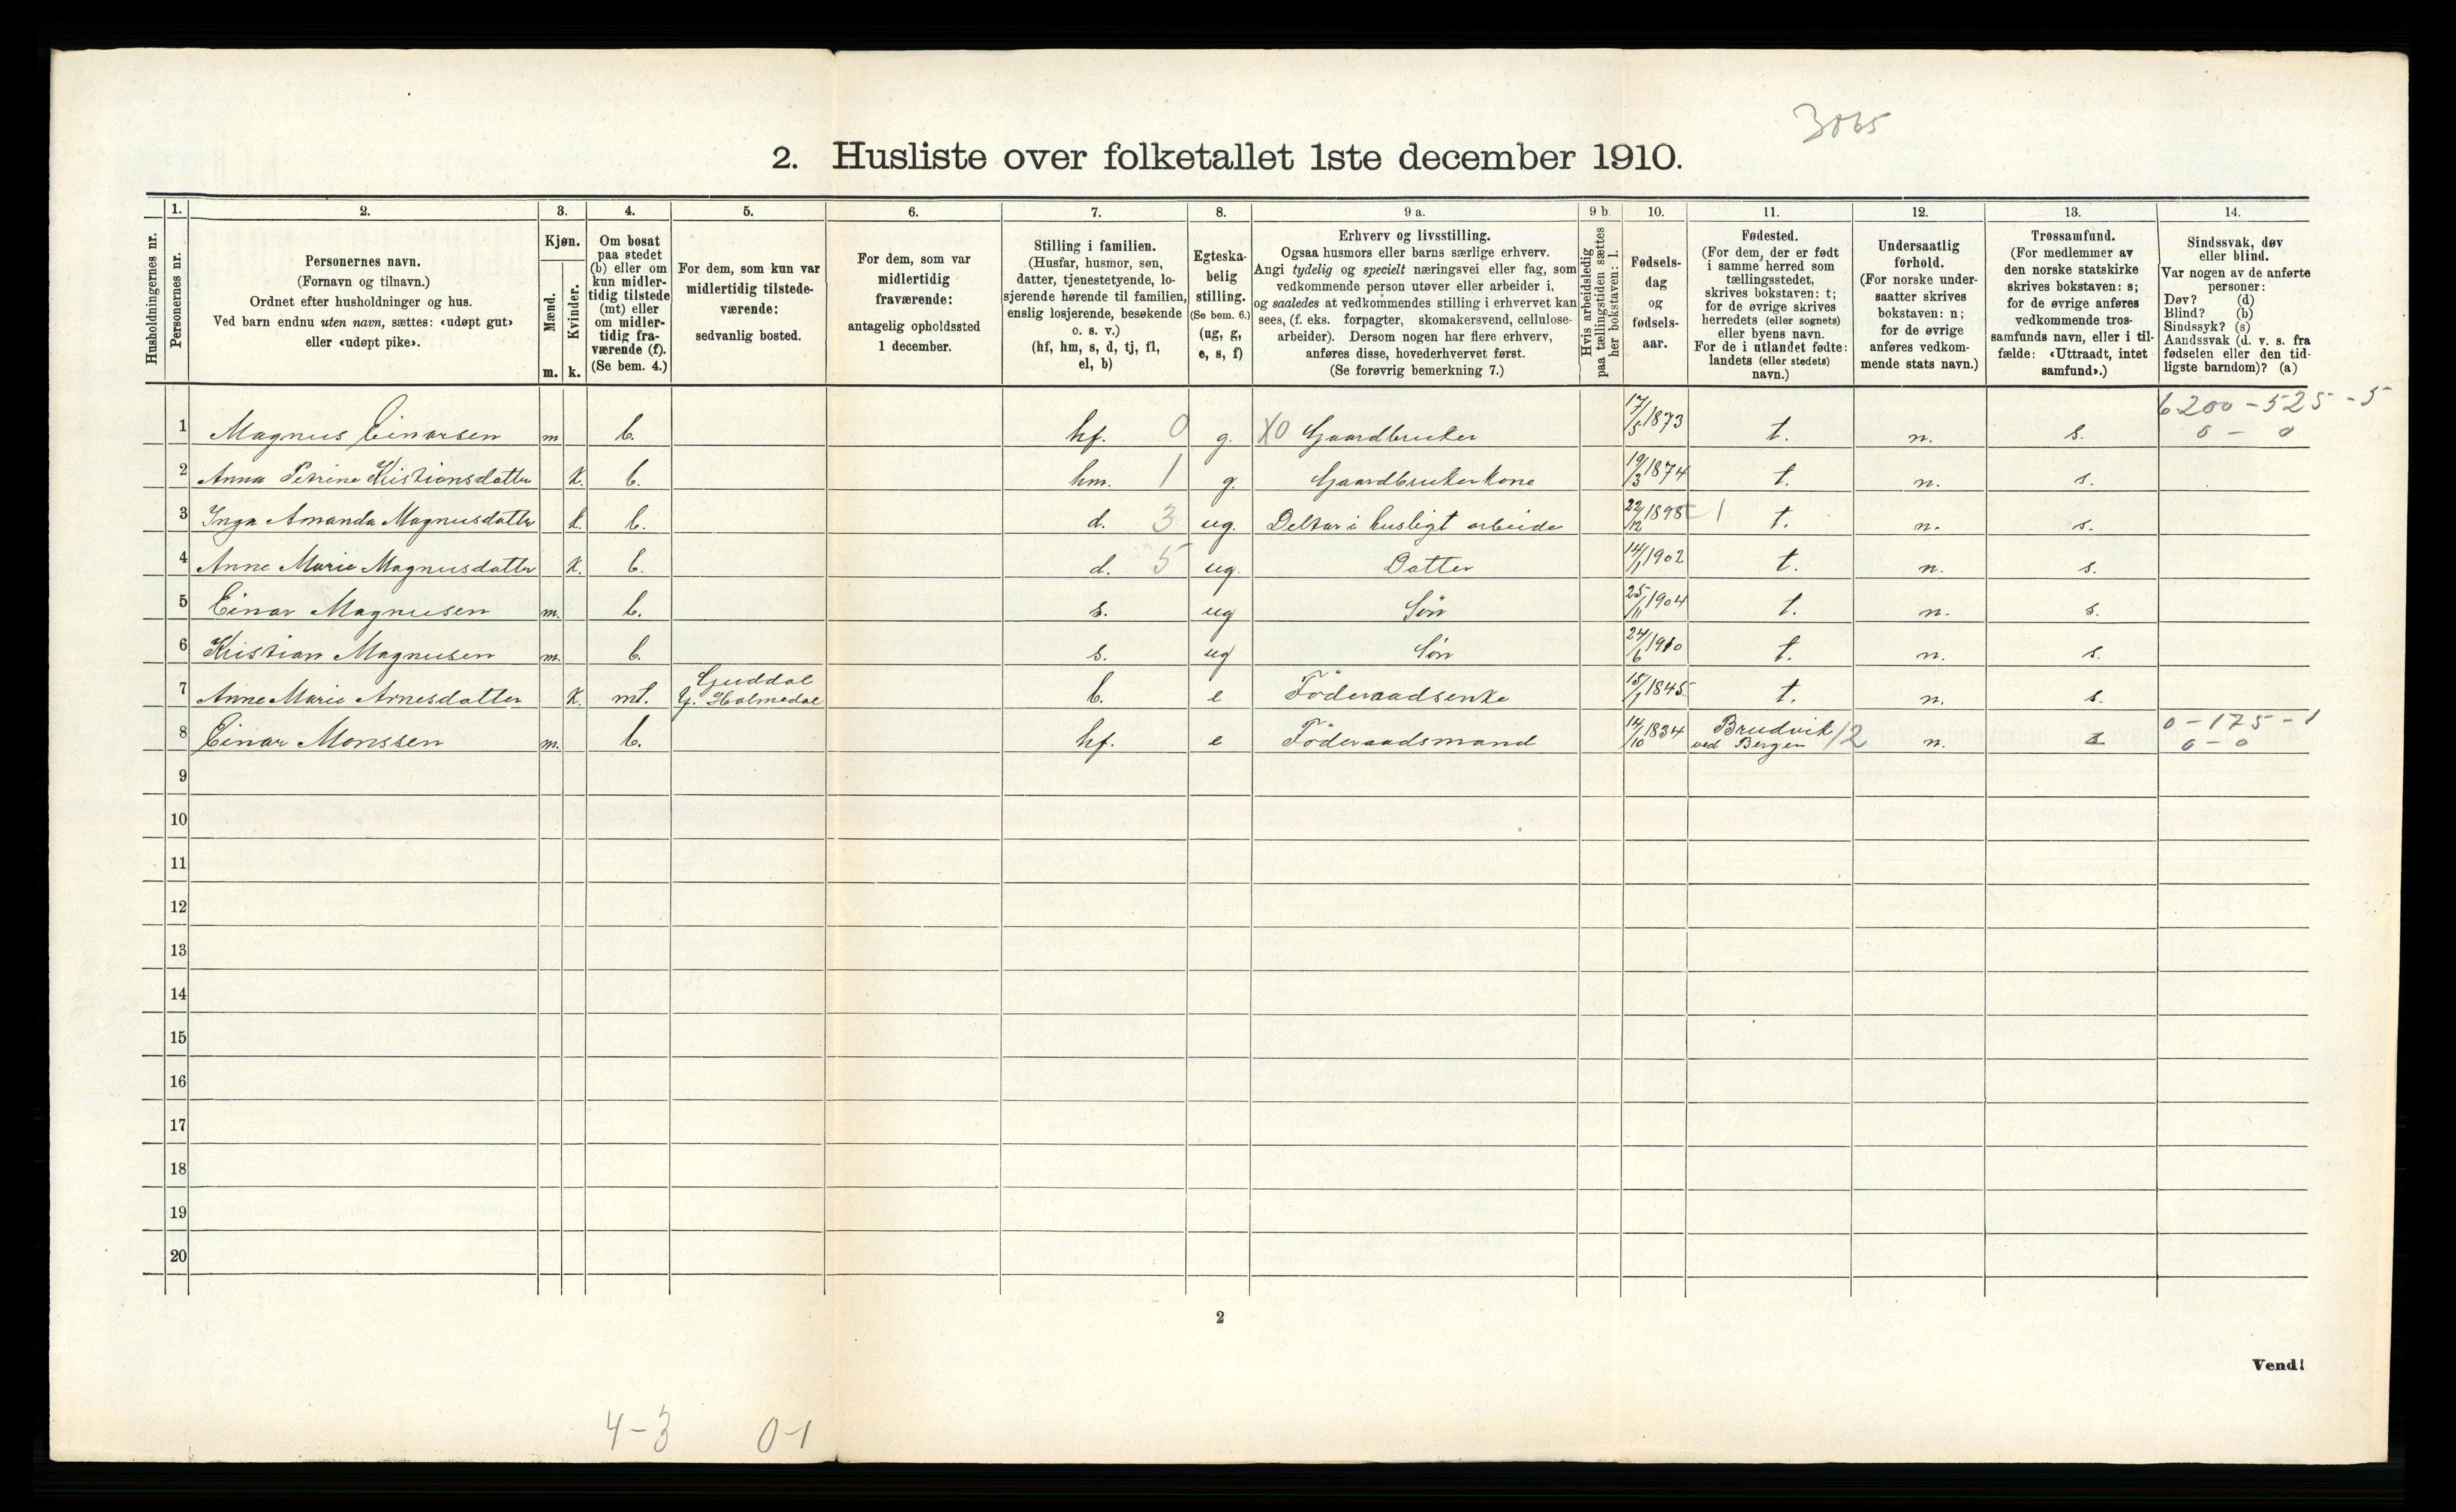 3065
2. Husliste over folketallet 1ste december 1910.
Husholdningernes nr.
1.
Personernes nr.
2.
Personernes navn.
(Fornavn og tilnavn.)
Ordnet efter husholdninger og hus.
Ved barn endnu uten navn, sættes: «udøpt gut»
eller «udøpt pike».
3.
Kjøn.
Mænd.
Kvinder.
m. k.
4.
Om bosat
paa stedet
(b) eller om
kun midler-
tidig tilstede
(mt) eller
om midler-
tidig fra-
værende (f).
(Se bem. 4.)
5.
For dem, som kun var
midlertidig tilstede-
værende:
sedvanlig bosted.
6.
For dem, som var
midlertidig
fraværende:
antagelig opholdssted
1 december.
7.
Stilling i familien.
(Husfar, husmor, søn,
datter, tjenestetyende, lo-
sjerende hørende til familien,
enslig losjerende, besøkende
o. s. v.)
(hf, hm, s, d, tj, fl,
el, b)
8.
Egteska-
belig
stilling.
(Se bem. 6.)
(ug, g,
e, s, f)
9 a.
Erhverv og livsstilling.
Ogsaa husmors eller barns særlige erhverv.
Angi tydelig og specielt næringsvei eller fag, som
vedkommende person utøver eller arbeider i,
og saaledes at vedkommendes stilling i erhvervet kan
sees, (f. eks. forpagter, skomakersvend, cellulose-
arbeider). Dersom nogen har flere erhverv,
anføres disse, hovederhvervet først.
(Se forøvrig bemerkning 7.)
9 b.
Hvis arbeidsledig
paa tællingstiden sættes
her bokstaven: l.
10.
Fødsels-
dag
og
fødsels-
aar.
11.
Fødested.
(For dem, der er født
i samme herred som
tællingsstedet,
skrives bokstaven: t;
for de øvrige skrives
herredets (eller sognets)
eller byens navn.
For de i utlandet fødte:
landets (eller stedets)
navn.)
12.
Undersaatlig
forhold.
(For norske under-
saatter skrives
bokstaven: n;
for de øvrige
anføres vedkom-
mende stats navn.)
13.
Trossamfund.
(For medlemmer av
den norske statskirke
skrives bokstaven: s;
for de øvrige anføres
vedkommende tros-
samfunds navn, eller i til-
fælde: «Uttraadt, intet
samfund».)
14.
Sindssvak, døv
eller blind.
Var nogen av de anførte
personer:
Døv? (d)
Blind? (b)
Sindssyk? (s)
Aandssvak (d. v. s. fra
fødselen eller den tid-
ligste barndom)? (a)
1 Magnus Einarsen m b. hf. 0 g. X0 Gaardbruker 17/5 1873 t. n. s. 6200 - 525 - 5
0 - 0
2 Anna Petrine Kistiansdatter k. b. hm. 1 g. Gaardbrukerkone 19/3 1874 t. n. s.
3 Inga Amanda Magnusdatter k. b. d. 3 ug. Deltar i husligt arbeide 22/12 1898 1 t. n. s.
4 Anne Marie Magnusdatter k. b. d. 5 ug. Datter 14/1 1902 t. n. s.
5 Einar Magnusen m. b. s. ug Sön 25/11 1904 t. n. s.
6 Kristian Magnusen m. b. s. ug Sön 24/6 1910 t. n. s.
7 Anne Marie Arnesdatter k. mt. Guddal
Y. Holmedal b. e Föderaadsenke 15/1 1845 t. n. s.
8 Einar Monssen m. b. hf. e Föderaadsmand 14/10 1834 Brudvik
ved Bergen 12 n. s. 0 - 175 - 1
0 - 0
9
10
11
12
13
14
15
16
17
18
19
20
2
Vend!
4-3 0-1